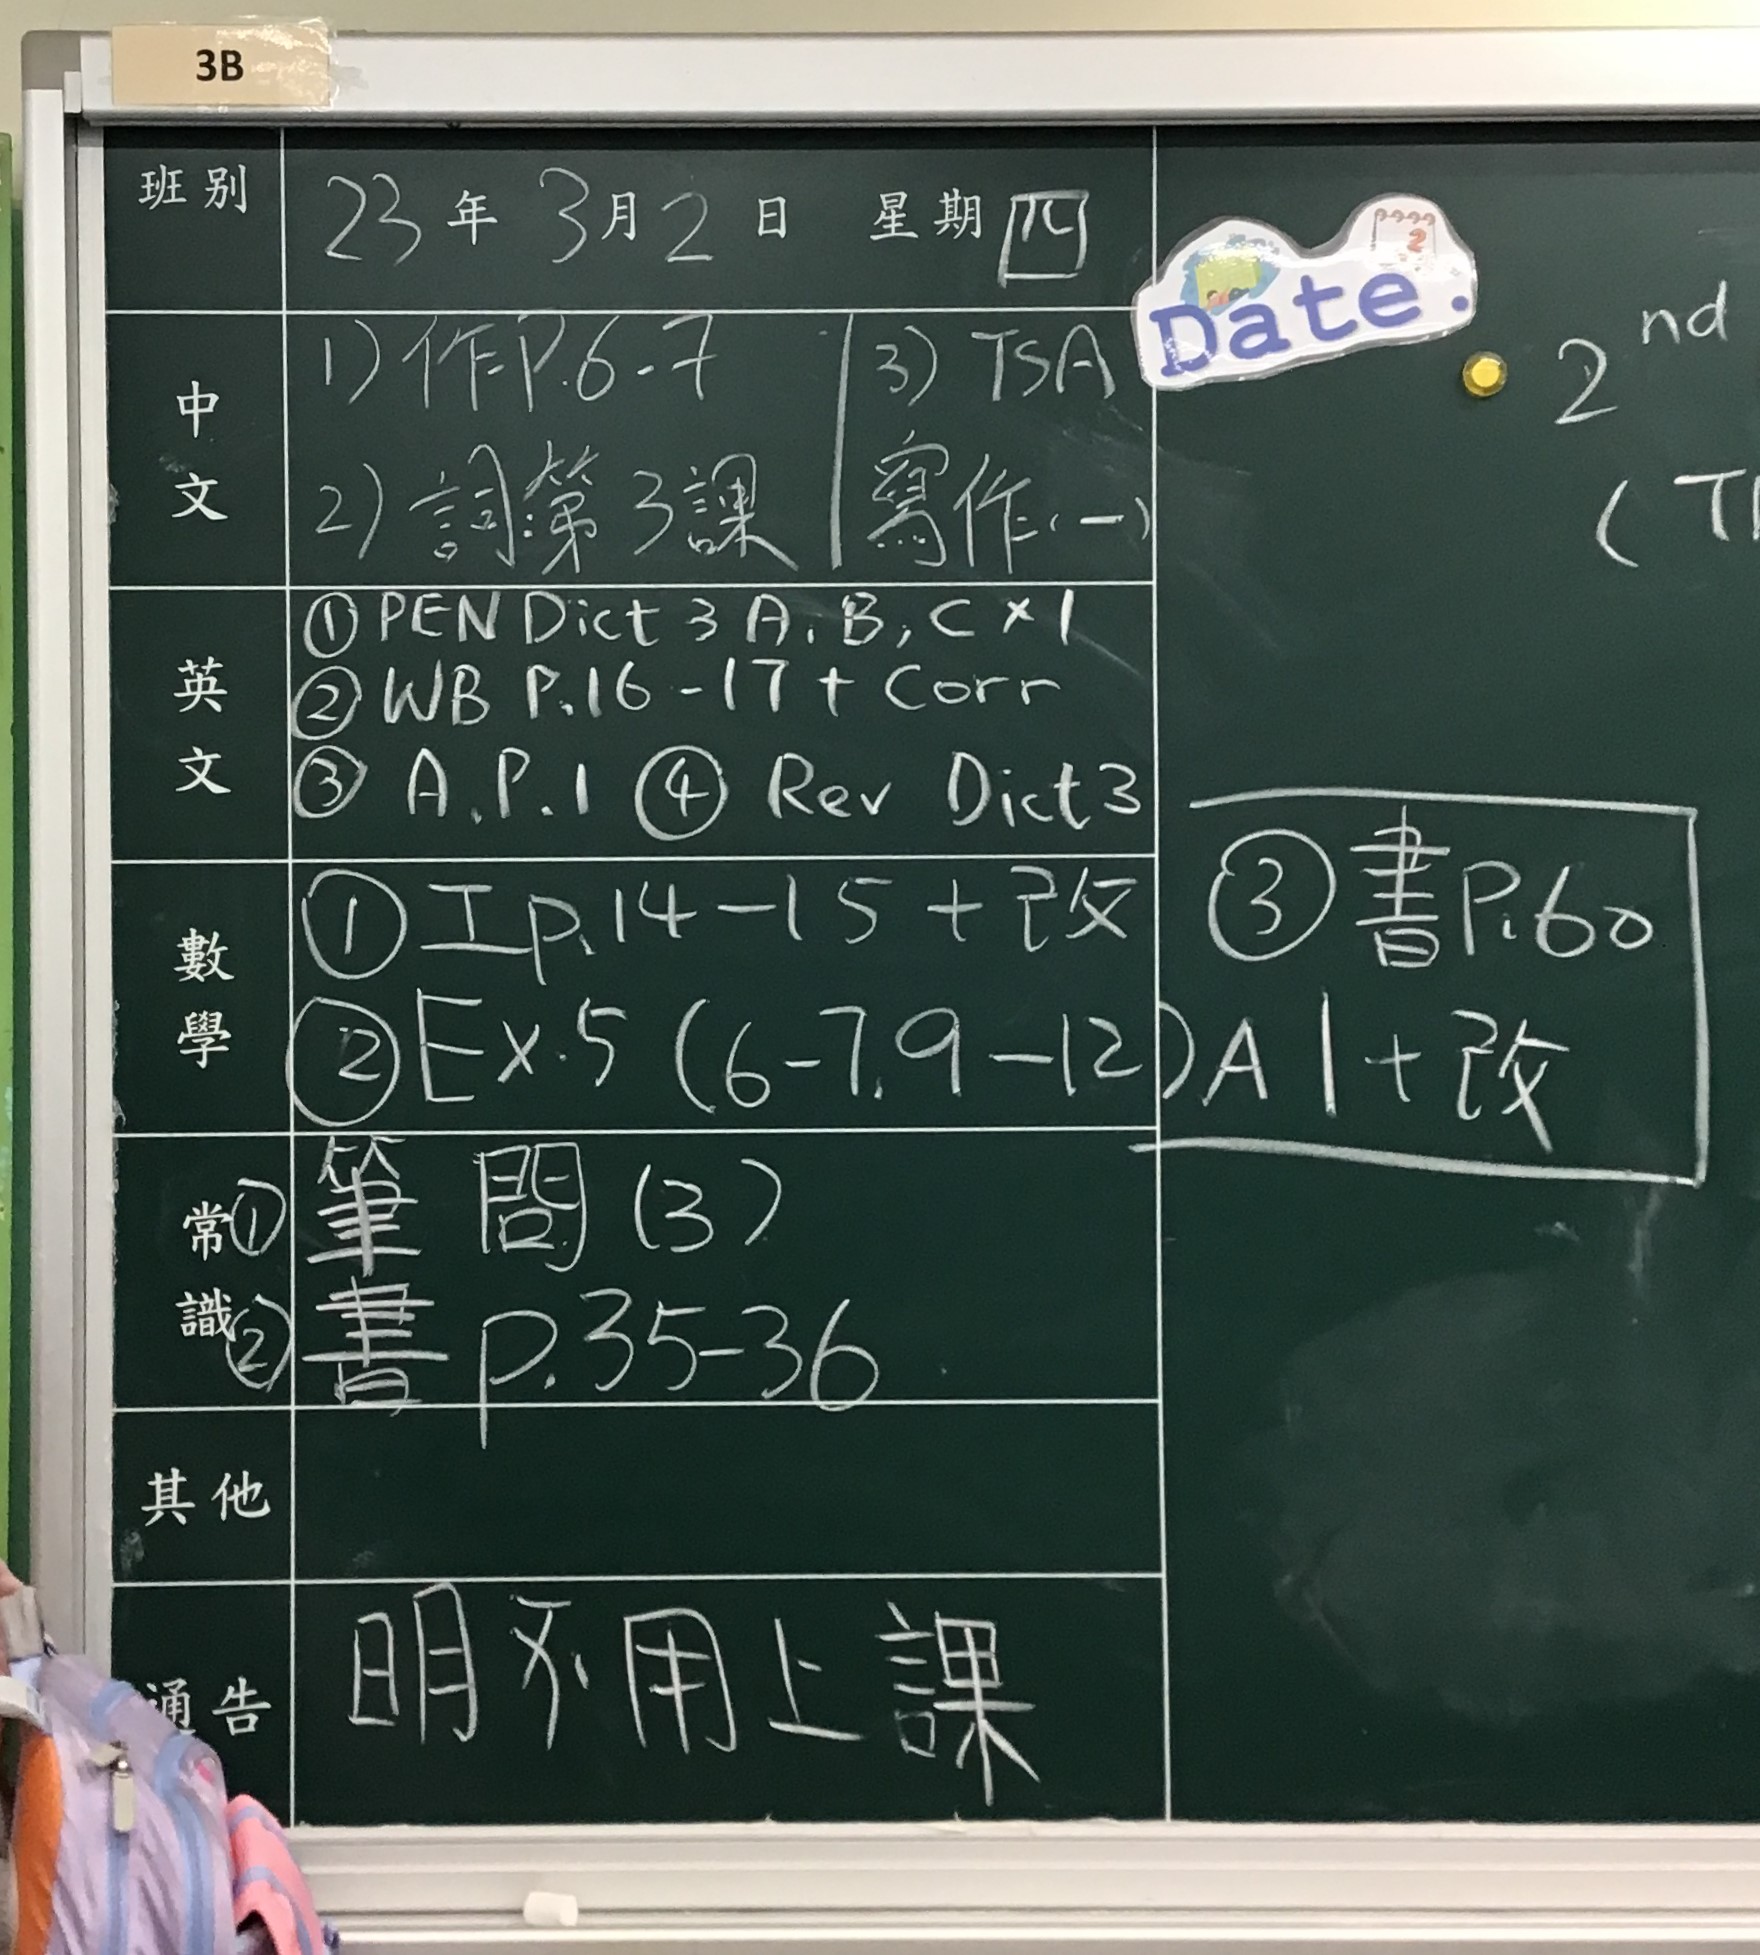 3B
班別 23年3月2日 星期四
Date.
2nd
(T
中文
1) 作P.6-7
2) 詞:第3課
3) TSA
寫作(一)
英文
① PEN Dict 3 A, B, C × 1
② WB P.16-17 + Corr
③ A.P.1 ④ Rev Dict 3
數學
① 工p.14-15 + 改
② Ex.5 (6-7, 9-12)
③ 書P.60
A1+改
常識
① 筆 問 (3)
② 書 p.35-36
其他
通告
明不用上課